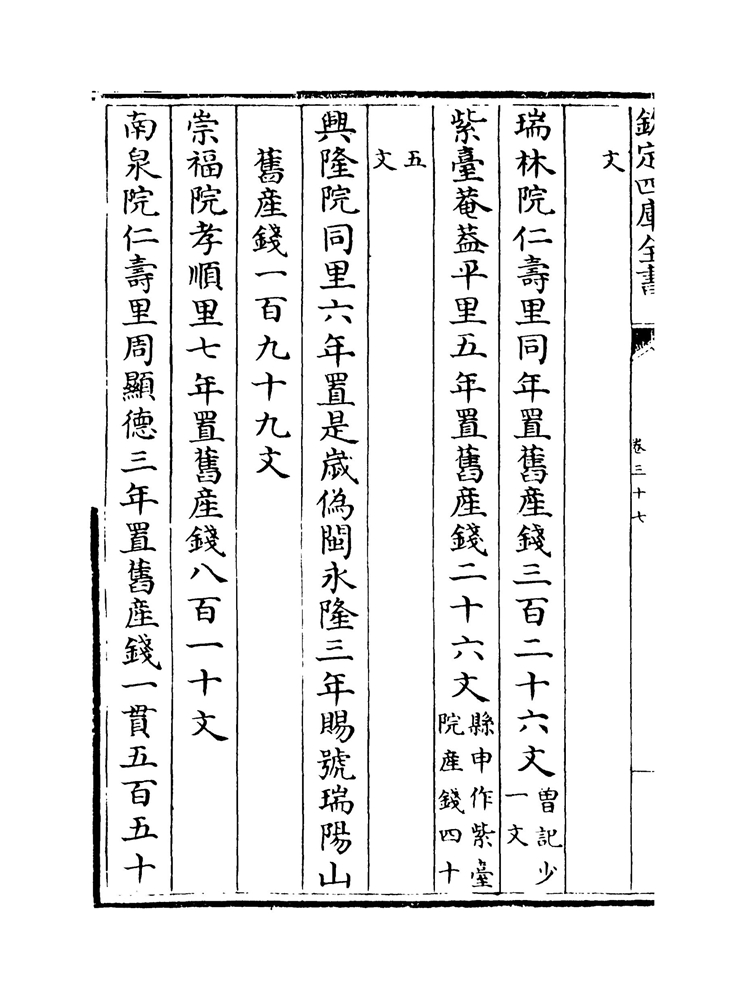 欽定四庫全書
卷三十七
文
瑞林院仁壽里同年置舊産錢三百二十六文曽記少
一文
紫臺菴葢平里五年置舊産錢二十六文縣申作紫臺
院産錢四十
五
文
興隆院同里六年置是歲偽閩永隆三年賜號瑞陽山
舊産錢一百九十九文
崇福院孝順里七年置舊産錢八百一十文
南泉院仁壽里周顯德三年置舊産錢一貫五百五十